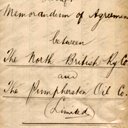 Memorandum of Agreement
between
The North British Ry Co.
and
The Pumpherston Oil Co.
(Limited)